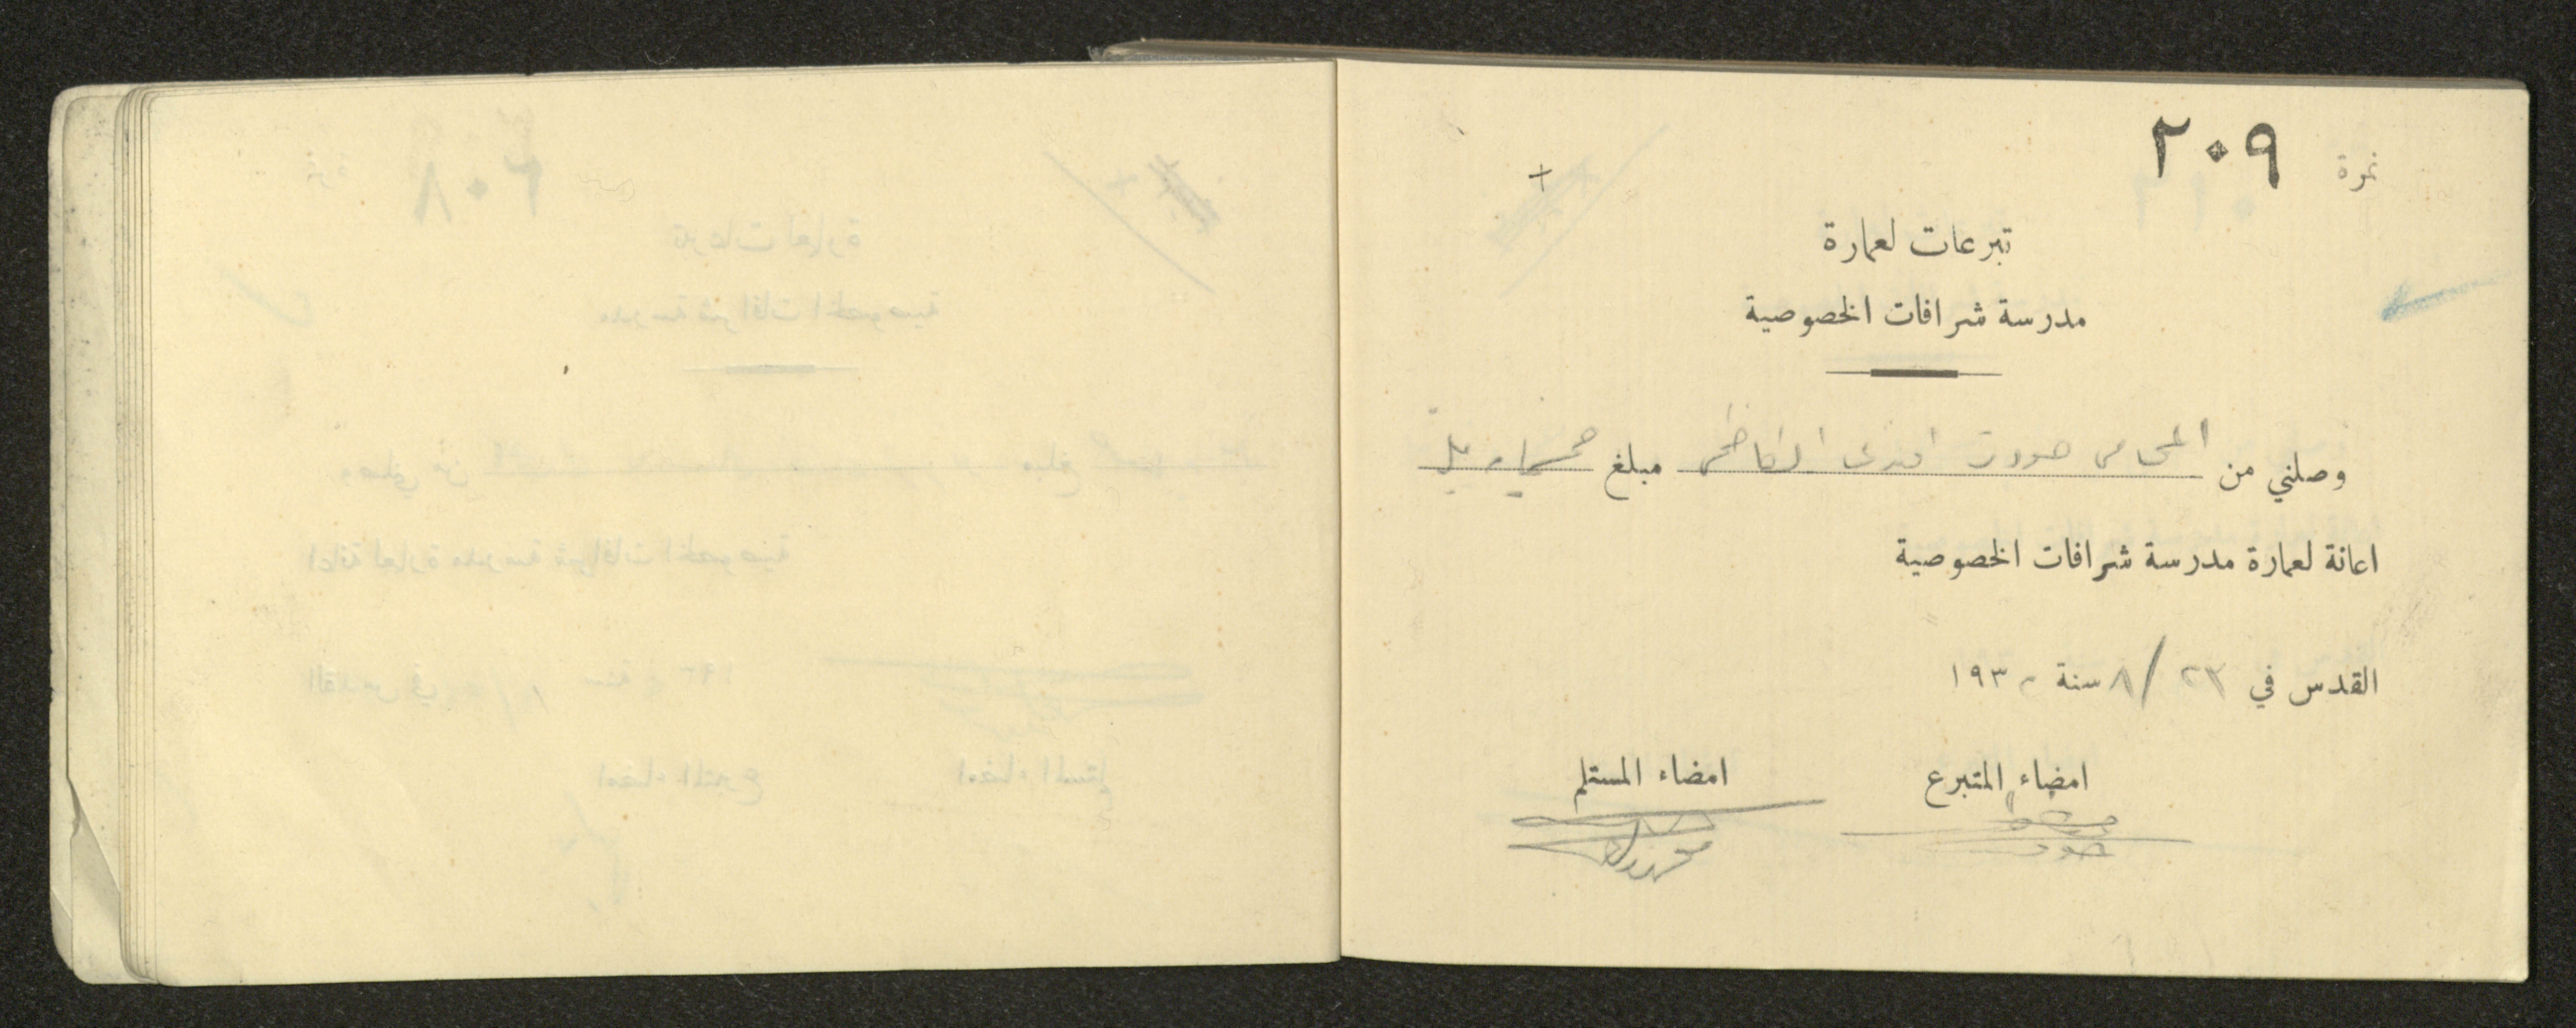 نمرة ٢٠٩
تبرعات لعمارة
مدرسة شرافات الخصوصية
وصلني من المحامي افندي مبلغ خمسماية مل
اعانة لعمارة مدرسة شرافات الخصوصية
القدس في ٢٣/٨ سنة ١٩٣٠
امضاء المتبرع امضاء المستلم